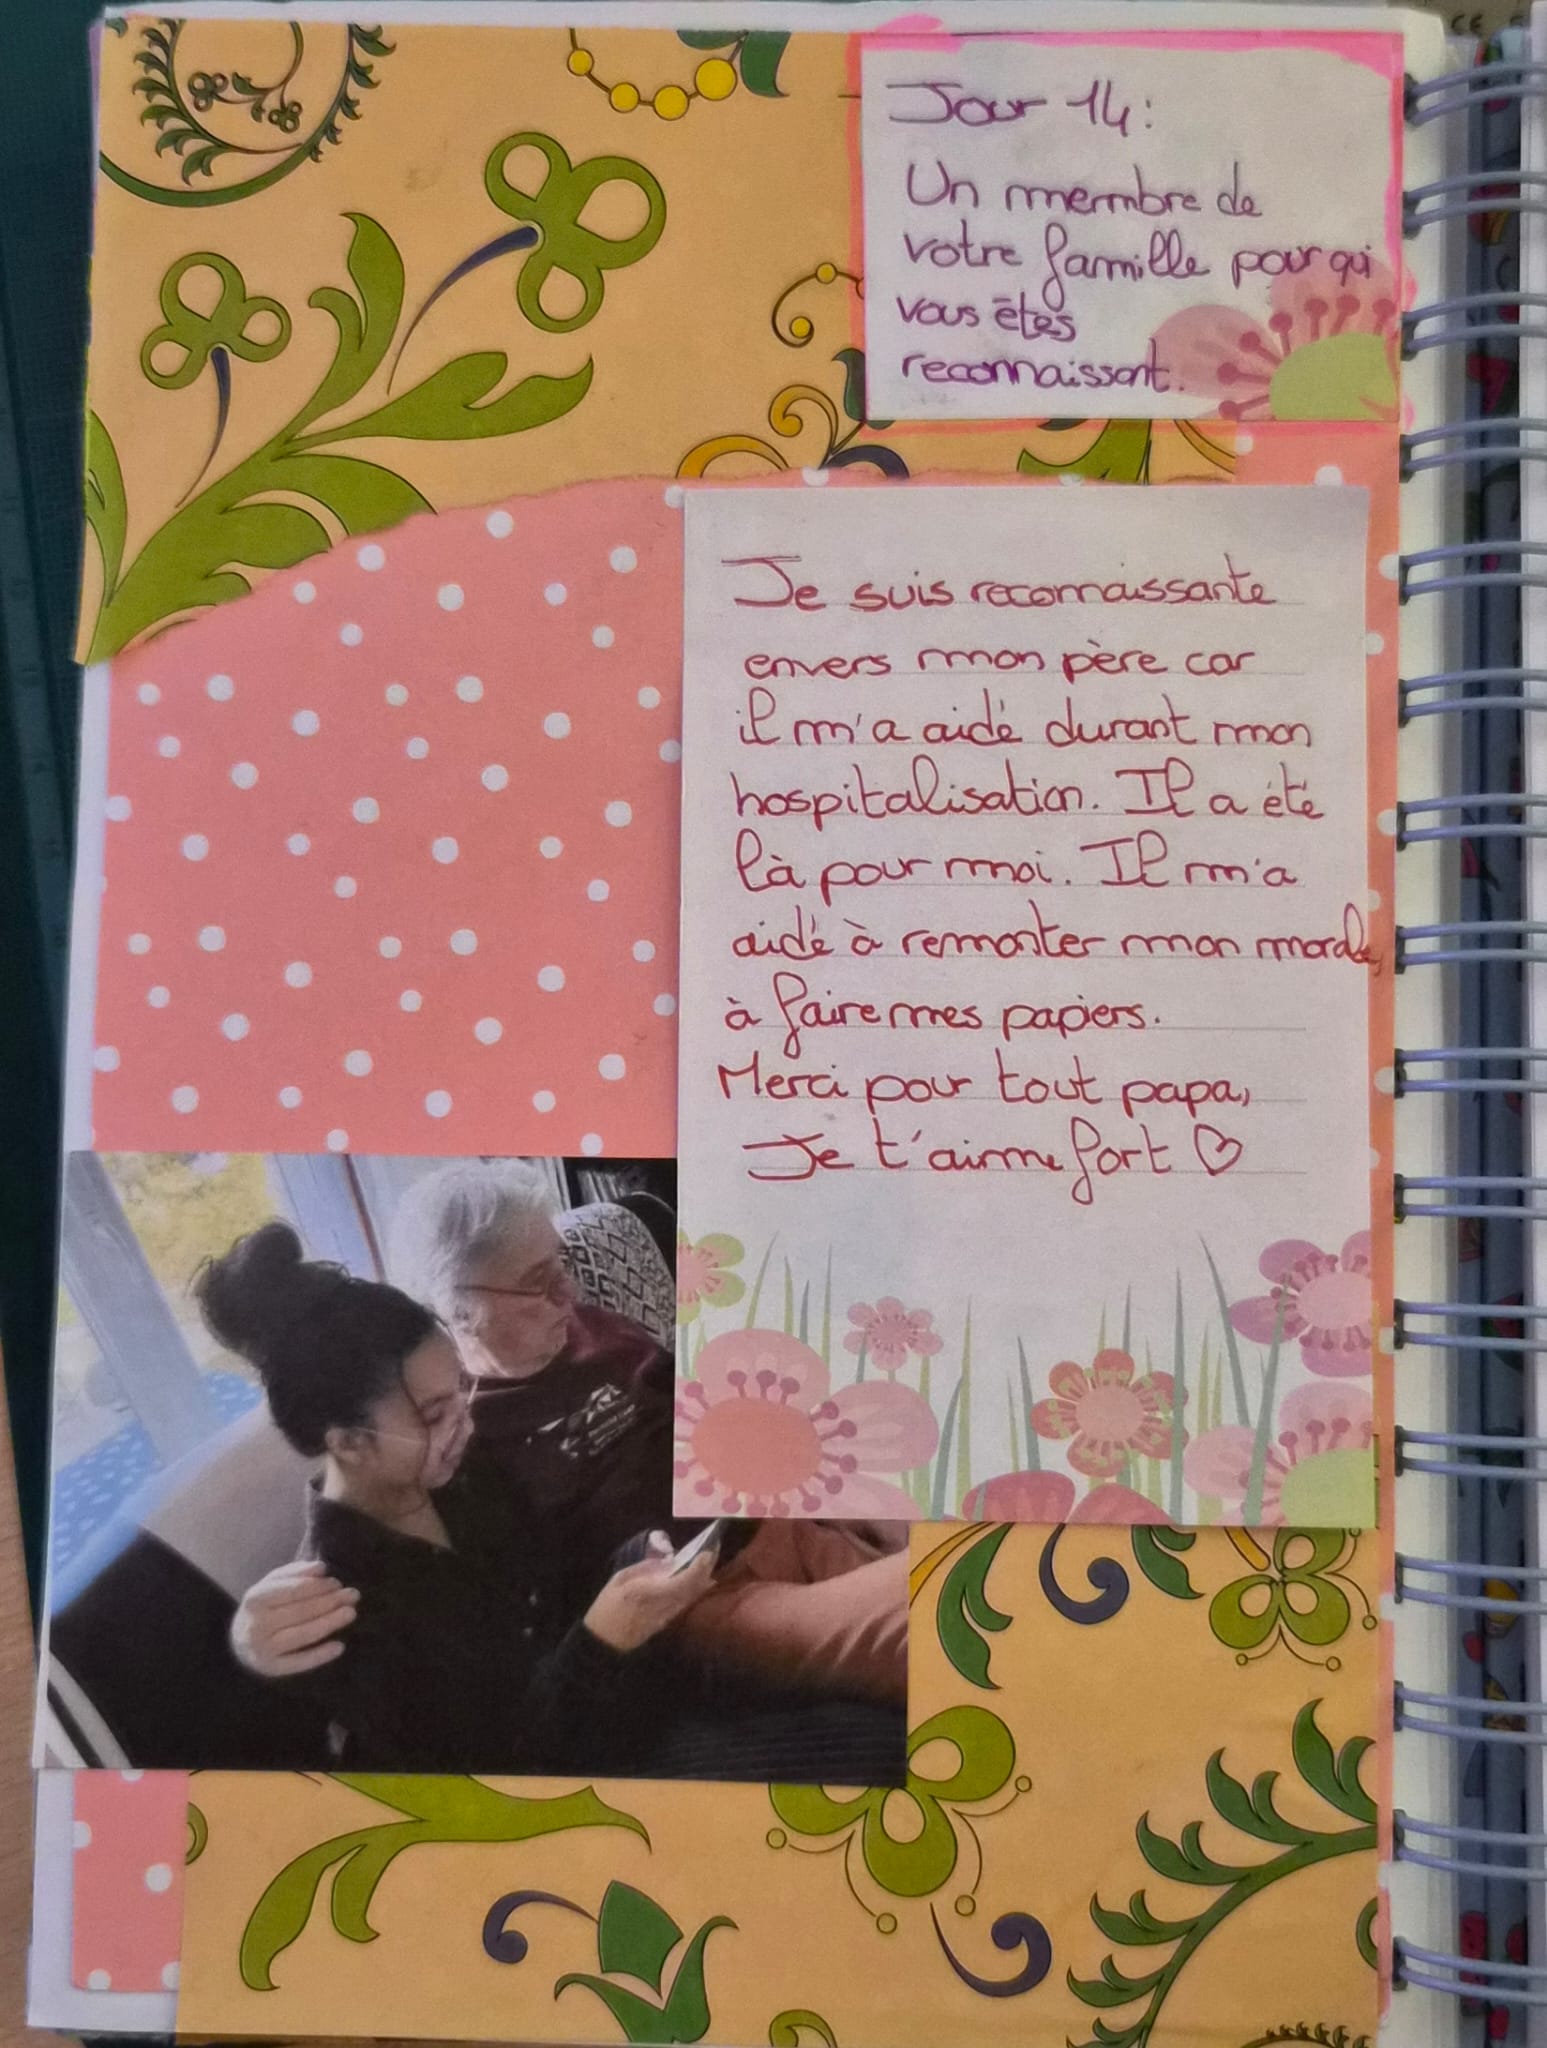 Jour 14:
Un membre de
votre famille pour qui
vous êtes
reconnaissant.
Je suis reconnaissante
envers mon père car
il m'a aidé durant mon
hospitalisation. Il a été
là pour moi. Il m'a
aidé à remonter mon morale,
à faire mes papiers.
Merci pour tout papa,
Je t'aime fort ♡
CE